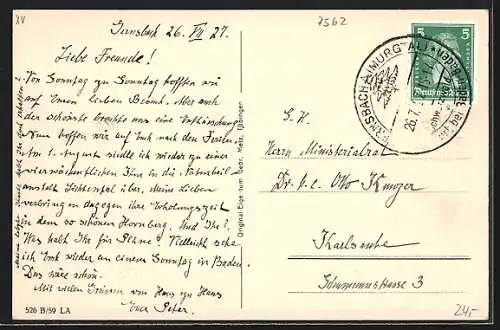 XV
7562
Gernsbach 26. VII 27.
Liebe Freunde!
Von Sonntag zu Sonntag hofften wir
auf Euren lieben Besuch. Aber auch
der schönste brachte uns eine Enttäuschung
Nun hoffen wir auf Euch nach den Ferien.
Am 1. August siedle ich wieder zu einer
vierwöchentlichen in die Naturheil
anstalt Lichtental über, meine Lieben
verbringen dagegen ihre Erholungszeit
in dem so schönen Hornberg. Und Ihr?
Was habt Ihr für Pläne? Vielleicht sehe
ich Euch wieder an einem Sonntag in Baden.
Das wäre schön.
Mit vielen Grüssen von Haus zu Haus
Euer Peter.
526 B/59 LA
Original Eigentum Georg Metz, Tübingen
5 5
Deutsches Reich
GERNSBACH (MURGTAL)
26.7.
S. H.
Herrn Ministerialrat
Dr. Otto
Karlsruhe
3
24,-